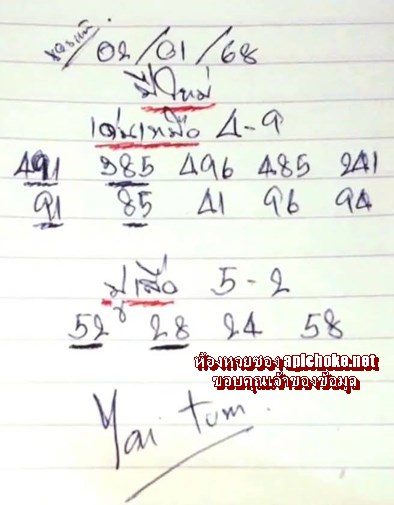 02/01/68
ปีใหม่
เด่นเหนือ 4-9
491 985 496 485 241
91 85 41 96 94
5-2
52 28 24 58
ห้องหวยซอง apichoke.net
ขอบคุณเจ้าของข้อมูล
Yai tum.